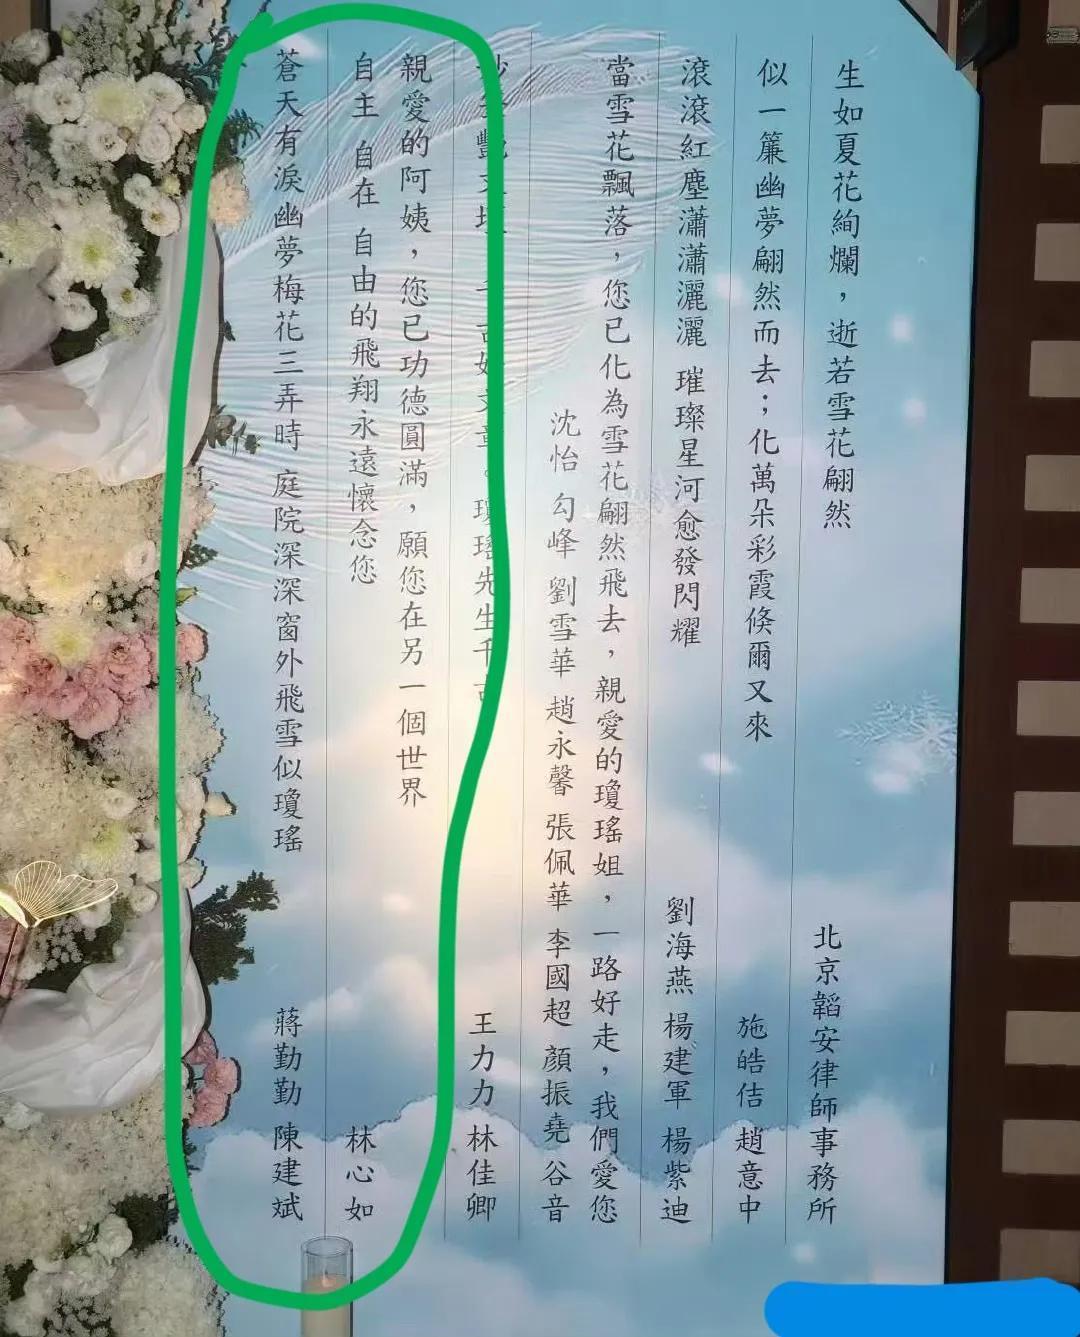 生如夏花絢爛，逝若雪花翩然
北京韜安律師事務所
似一簾幽夢翩然而去；化萬朵彩霞倏爾又來
施皓佶 趙意中
滾滾紅塵瀟瀟灑灑 璀璨星河愈發閃耀
劉海燕 楊建軍 楊紫迪
當雪花飄落，您已化為雪花翩然飛去，親愛的瓊瑤姐，一路好走，我們愛您
沈怡 勾峰 劉雪華 趙永馨 張佩華 李國超 顏振堯 谷音
豔文壇 千古好文章。瓊瑤先生千古
王力力 林佳卿
親愛的阿姨，您已功德圓滿，願您在另一個世界
自主 自在 自由的飛翔永遠懷念您
林心如
蒼天有淚幽夢梅花三弄時 庭院深深窗外飛雪似瓊瑤
蔣勤勤 陳建斌